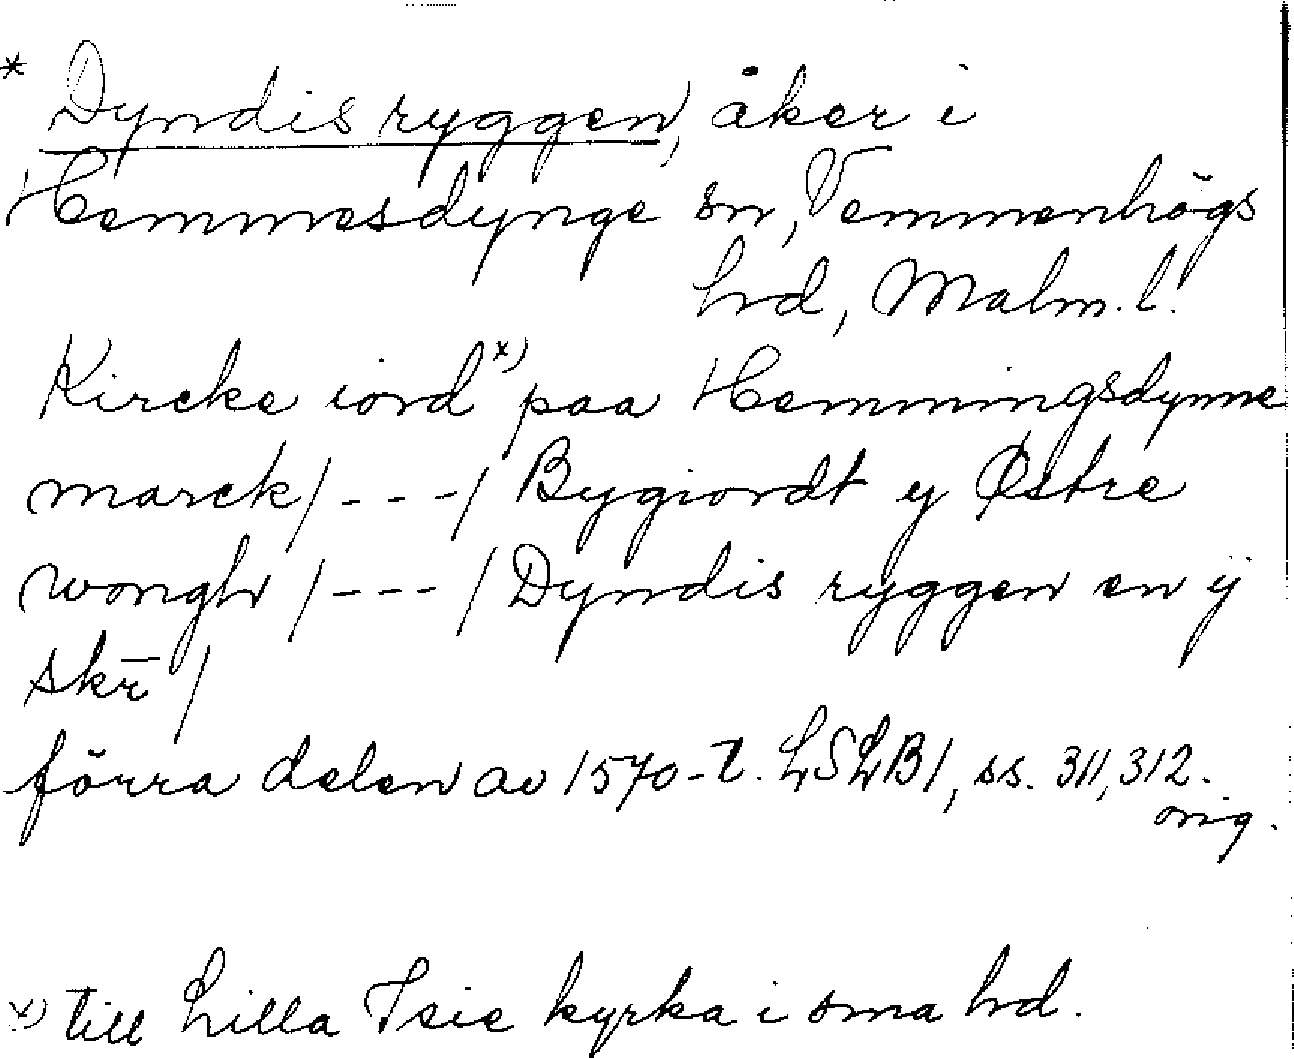 * Dyndis ryggen, åker i
Hemmesdynge sn, Vemmenhögs
hrd, Malm. l.
Kircke iord x) paa Hemmingsdynne
marck / - - - / Bygiordt y Østre
wongh / - - - / Dyndis ryggen en ij
skr̄ /
förra delen av 1570-t. LSLB1, ss. 311, 312.
orig.
x) till Lilla Isie kyrka i sma hrd.